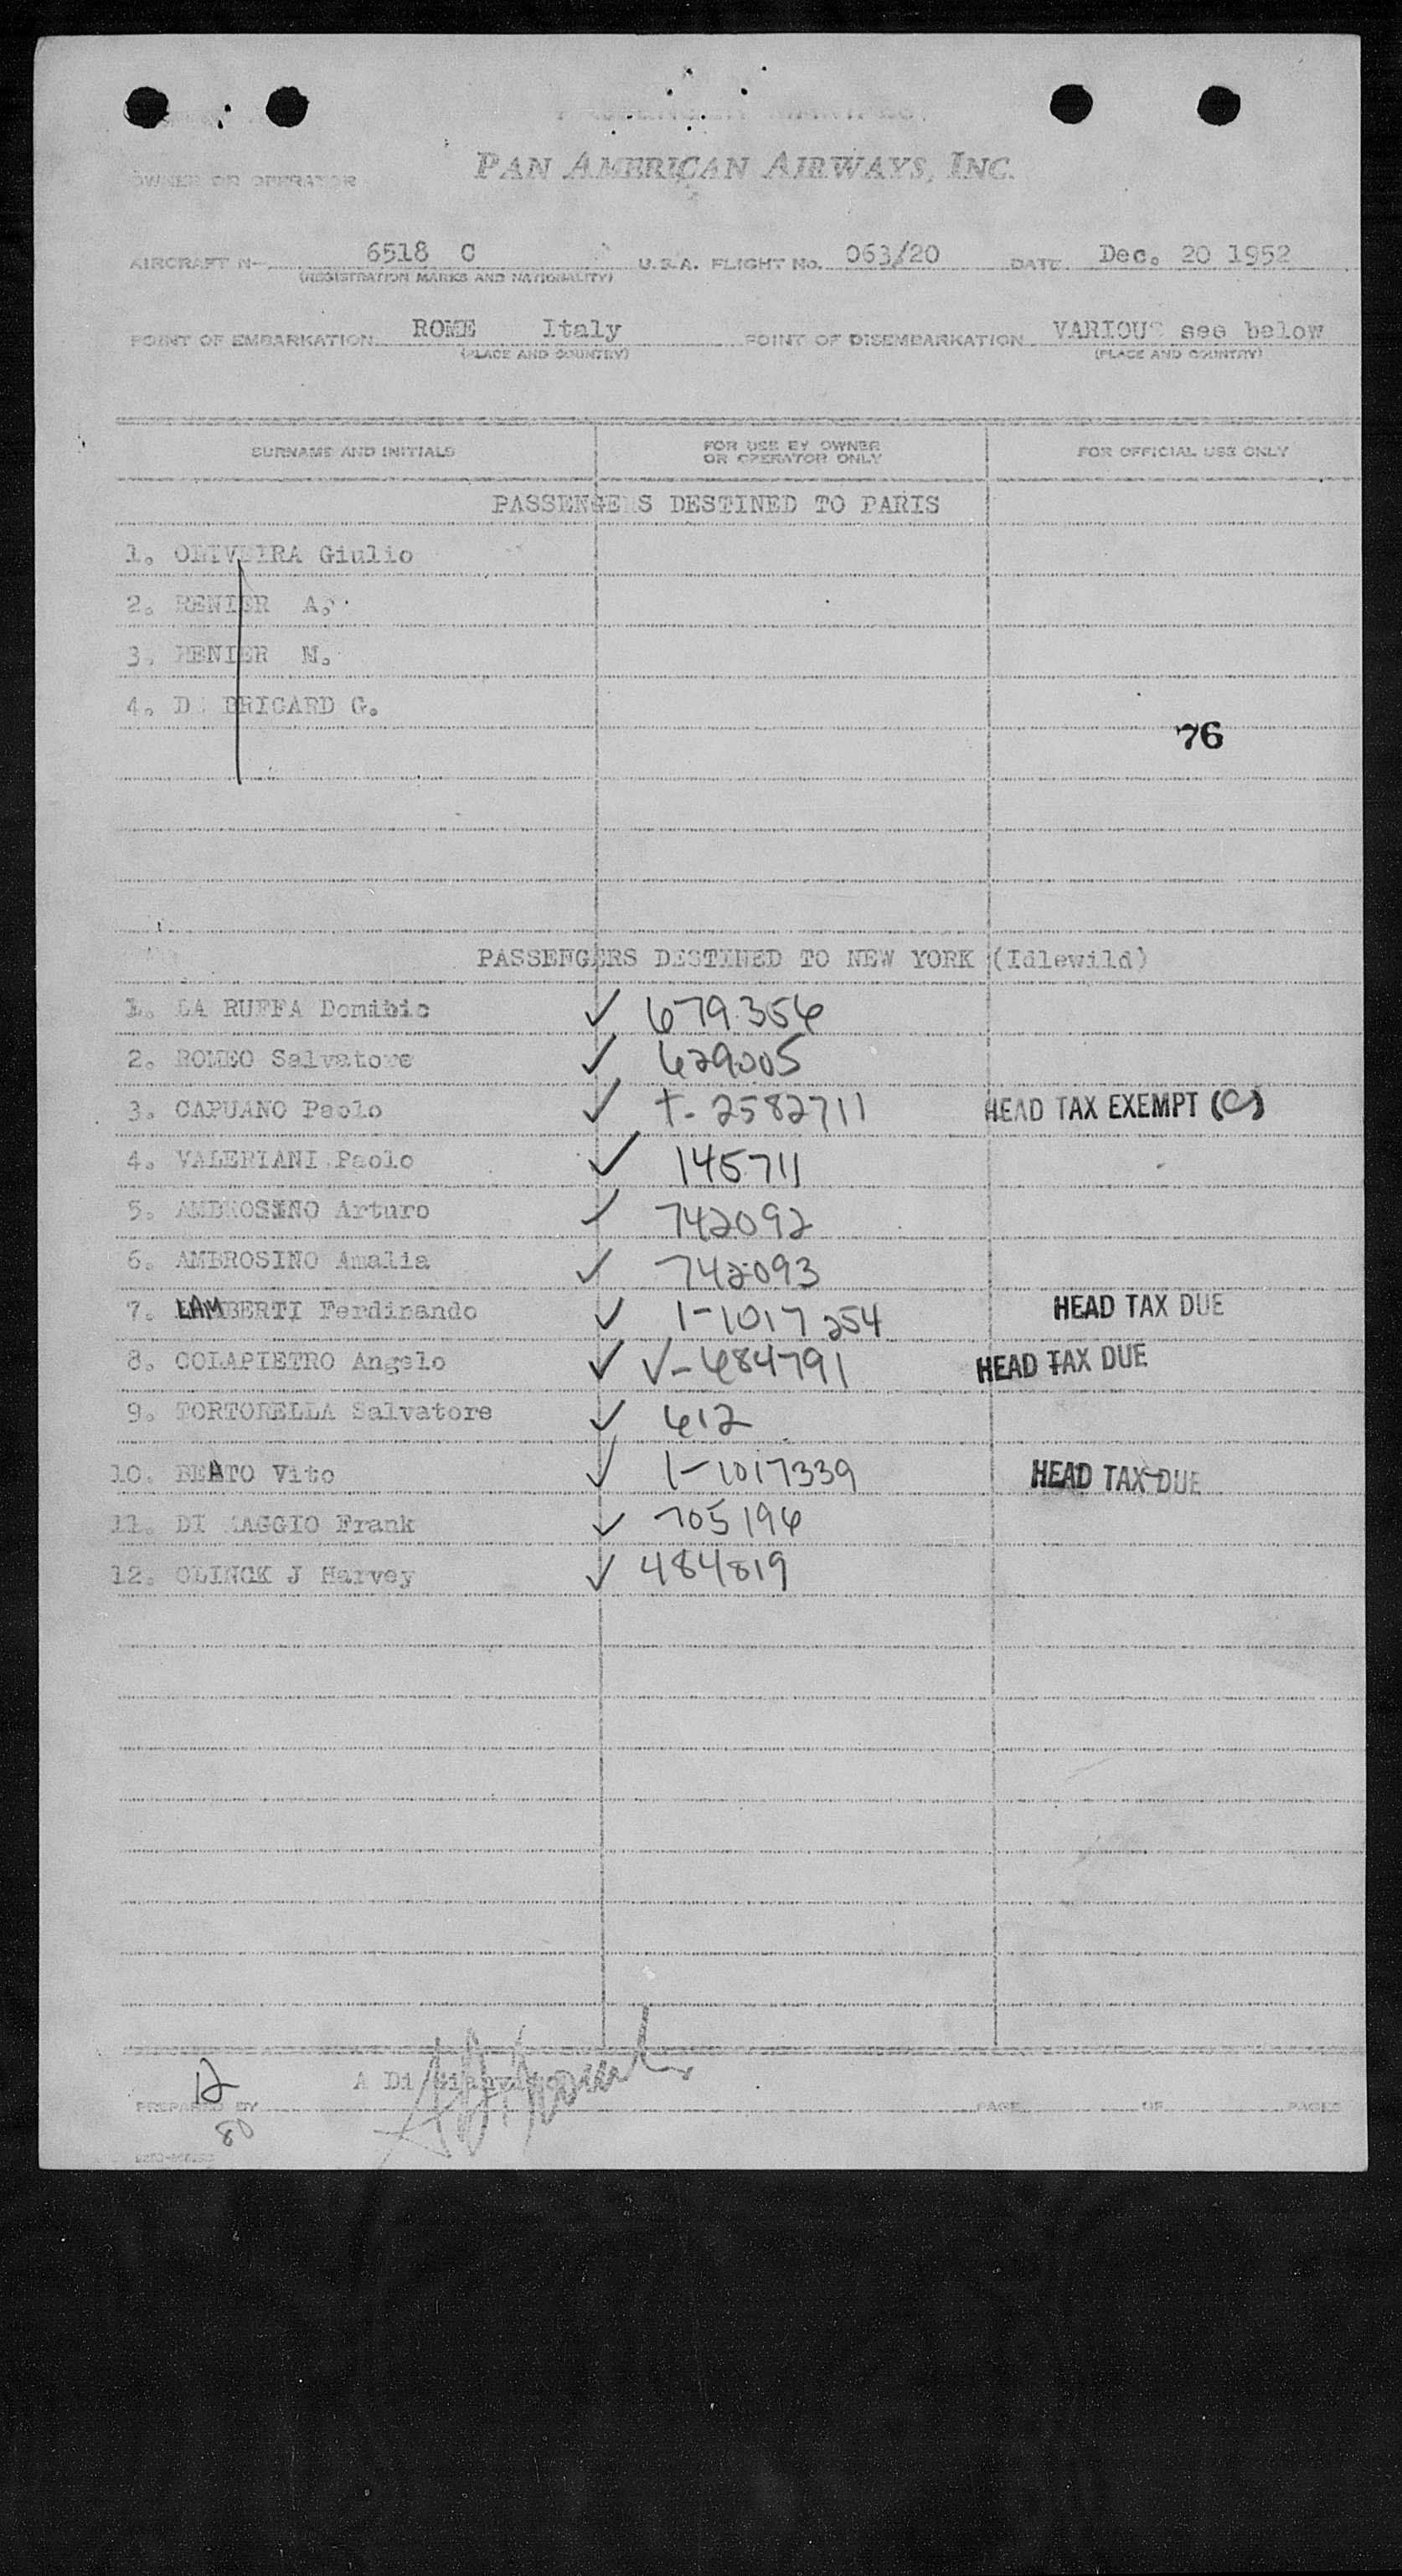 PASSENGER MANIFEST
OWNER OR OPERATOR PAN AMERICAN AIRWAYS, INC.
AIRCRAFT N- 6518 C U.S.A. FLIGHT NO. 063/20 DATE Dec. 20 1952
(REGISTRATION MARKS AND NATIONALITY)
POINT OF EMBARKATION ROME Italy POINT OF DISEMBARKATION VARIOUS see below
(PLACE AND COUNTRY) (PLACE AND COUNTRY)
SURNAME AND INITIALS FOR USE BY OWNER OR OPERATOR ONLY FOR OFFICIAL USE ONLY
PASSENGERS DESTINED TO PARIS
1. OLIVEIRA Giulio
2. RENIER A.
3. RENIER M.
4. D BRICARD G.
76
PASSENGERS DESTINED TO NEW YORK (Idlewild)
1. LA RUFFA ✓ 679356
2. ROMEO Salvatore ✓ 629005
3. CAPUANO Paolo ✓ T-2582711 HEAD TAX EXEMPT (C)
4. VALERIANI Paolo ✓ 145711
5. AMBROSINO Arturo ✓ 742092
6. AMBROSINO Amalia ✓ 742093
7. LAMBERTI Ferdinando ✓ 1-1017254 HEAD TAX DUE
8. COLAPIETRO Angelo ✓ V-684791 HEAD TAX DUE
9. TORTORELLA Salvatore ✓ 612
10. BEATO Vito ✓ 1-1017339 HEAD TAX DUE
11. DI MAGGIO Frank ✓ 705196
12. OLINCK J Harvey ✓ 484819
12
PREPARED BY A Di PAGE OF PAGES
80